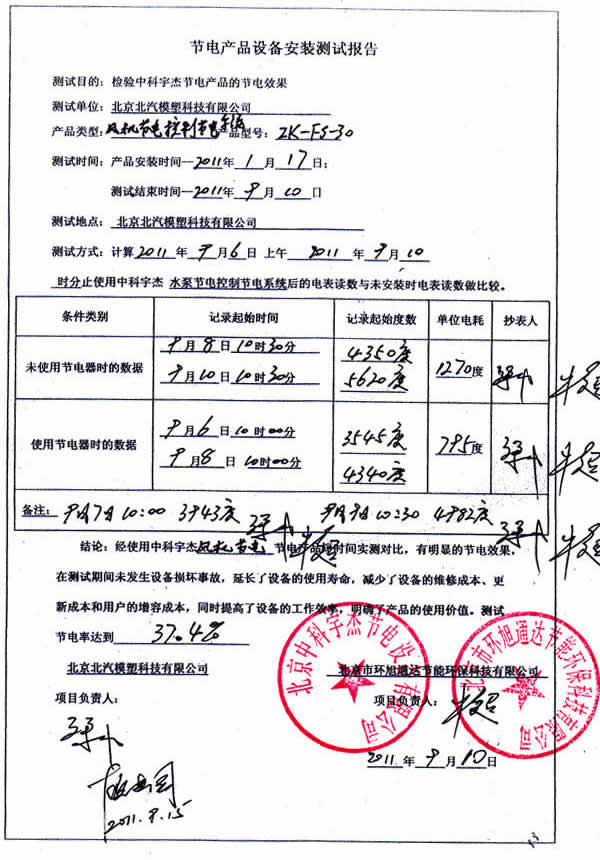 节电产品设备安装测试报告
测试目的：检验中科宇杰节电产品的节电效果
测试单位：北京北汽模塑科技有限公司
产品类型：风机节电控制节电系统产品型号：ZK-FS-30
测试时间：产品安装时间—2011年1月17日；
测试结束时间—2011年9月10日
测试地点：北京北汽模塑科技有限公司
测试方式：计算2011年9月6日 上午 2011年9月10
时分止使用中科宇杰 水泵节电控制节电系统后的电表读数与未安装时电表读数做比较。
条件类别 记录起始时间 记录起始度数 单位电耗 抄表人
未使用节电器时的数据 9月8日10时30分 4350度 1270度
9月10日10时30分 5620度
使用节电器时的数据 9月6日10时00分 3545度 795度
9月8日10时00分 4340度
备注：9月7日10:00 3943度 9月9日10:30 4982度
结论：经使用中科宇杰风机节电节电产品短时间实测对比，有明显的节电效果，
在测试期间未发生设备损坏事故，延长了设备的使用寿命，减少了设备的维修成本、更
新成本和用户的增容成本，同时提高了设备的工作效率，明确了产品的使用价值。测试
节电率达到 37.4%
北京北汽模塑科技有限公司 北京市环旭通达节能环保科技有限公司
项目负责人： 项目负责人：
北京中科宇杰节电设备有限公司
北京市环旭通达节能环保科技有限公司
2011年9月10日
2011.9.15